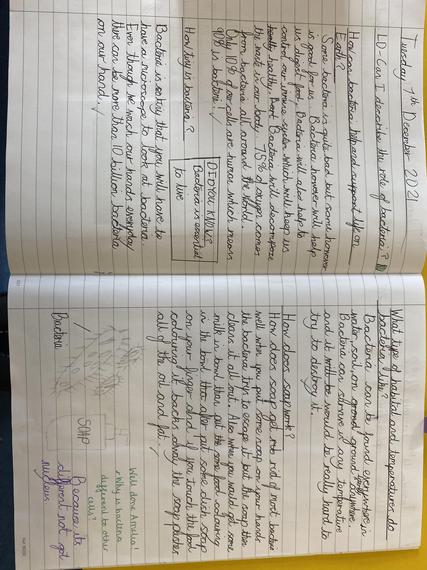 Tuesday 7th December 2021
LO- Can I describe the role of bacteria?
How can bacteria help and support life on
Earth?
Some bacteria is quite bad but some however
is good for us. Bacteria however will help
us digest food. Bacteria will also help to
control our imune system which will keep us
healthy. Most Bacteria will decompose
the waste in our body. 75% of oxygen comes
from bacteria all around the world.
Only 10% of our cells are human which means
90% is bacteria!
How tiny is bacteria?
DID YOU KNOW?
Bacteria is essential
to live
Bacteria is so tiny that you will have to
have a microscope to look at bacteria.
Even though we wash our hands everyday
there can be more than 10 billion bacteria
on our hand.
What type of habitat and temperatures do
bacteria like?
Bacteria can be found everywhere in
water, soil, on ground ground anywhere.
Bacteria can survive in any temperature
and it will be would be really hard to
try to destroy it.
How does soap work?
How does soap get rid of most bacteria
well when you put some soap on your hands
the bacteria trys to escape it but the soap then
cleans it all out. Also when you would get some
milk in bowl then put some food colouring
in the bowl then after put some dish soap
on your finger and if you touch the food
colouring it backs away the soap pushes
all of the oil and fat.
Bacteria
SOAP
Well done Amelia!
Why is bacteria
different to other
cells?
Because its
different not got
nucleus